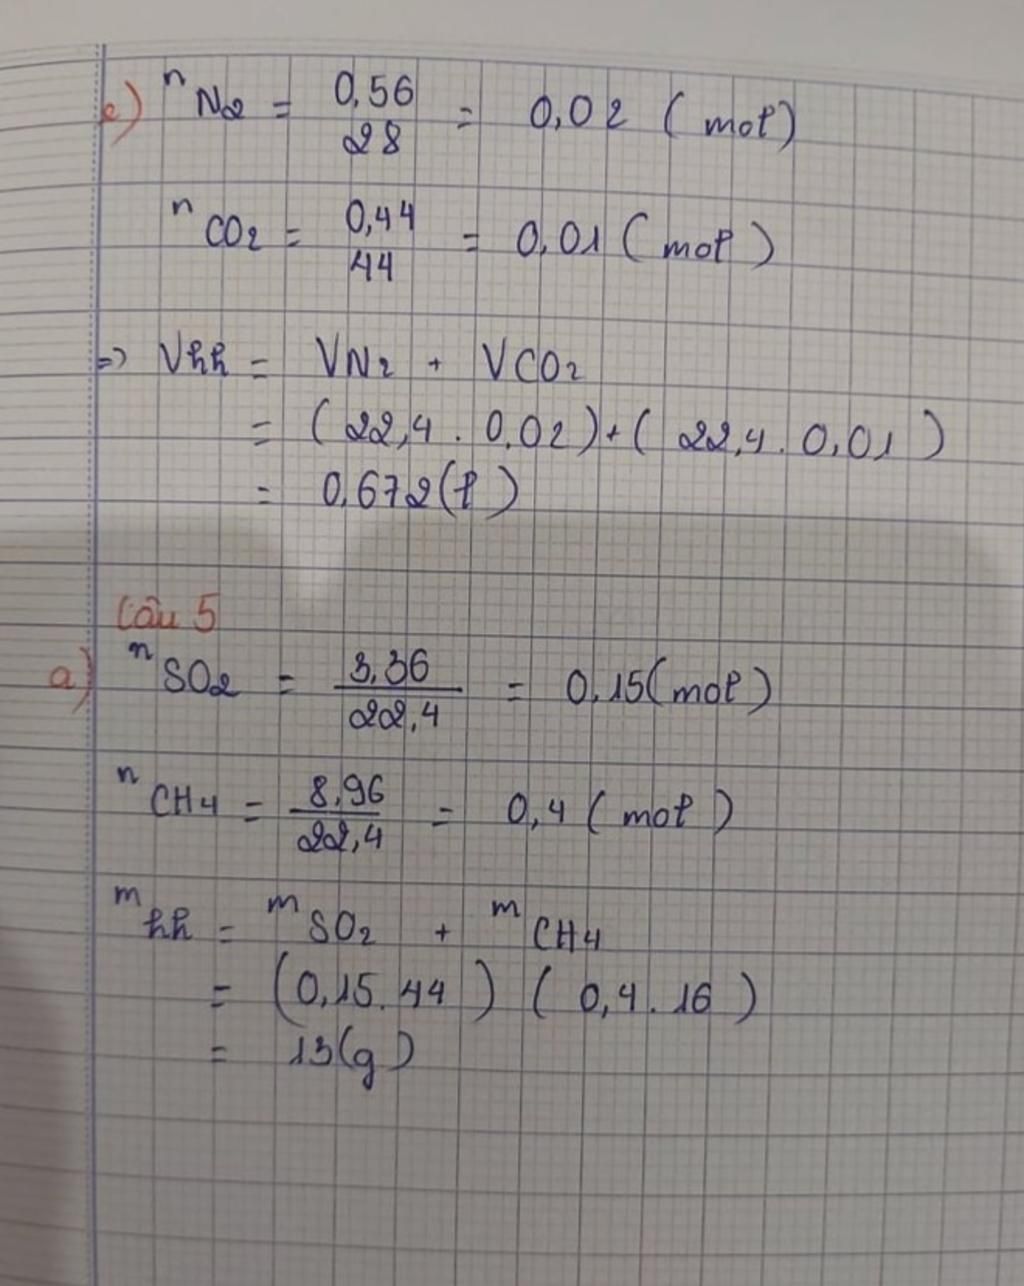 e) nN2 = 0,56/28 = 0,02 (mol)
nCO2 = 0,44/44 = 0,01 (mol)
=> Vhh = VN2 + VCO2
= (22,4 . 0,02) + (22,4 . 0,01)
= 0,672 (l)
Câu 5
a) nSO2 = 3,36/22,4 = 0,15 (mol)
nCH4 = 8,96/22,4 = 0,4 (mol)
mhh = mSO2 + mCH4
= (0,15 . 44) (0,4 . 16)
= 13 (g)